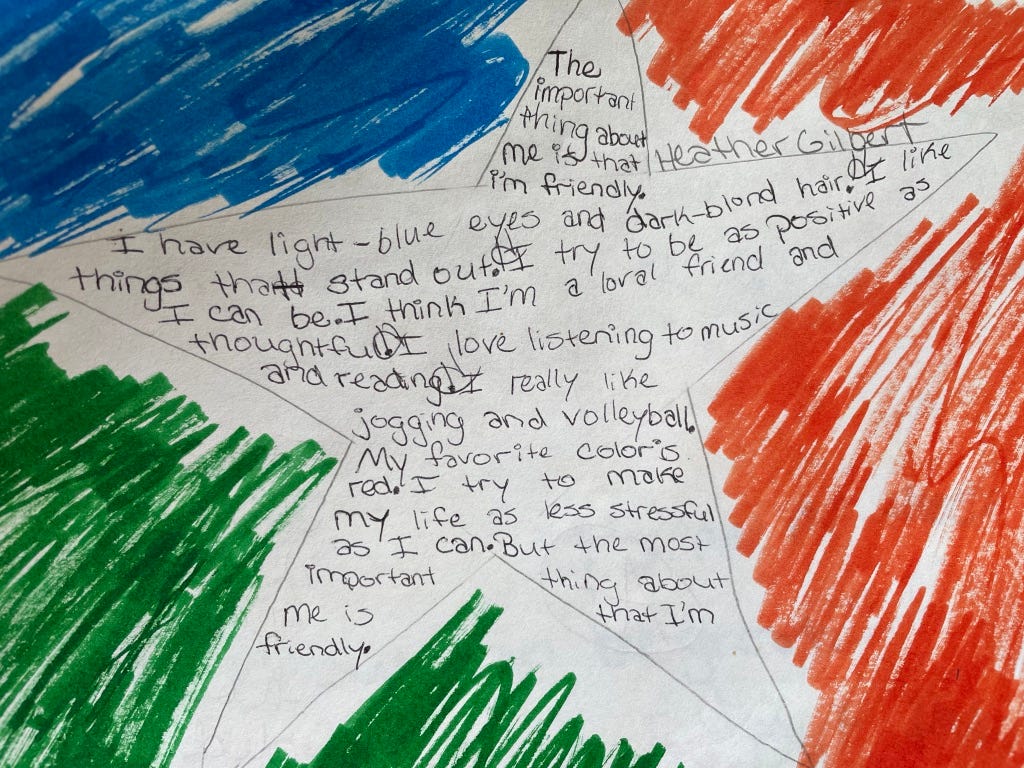 The
important
thing about
me is that
i'm friendly.
Heather Gilbert
I have light-blue eyes and dark-blond hair. I like
things that stand out. I try to be as positive as
I can be. I think I'm a loral friend and
thoughtful. I love listening to music
and reading. I really like
jogging and volleyball.
My favorite color is
red. I try to make
my life as less stressful
as I can. But the most
important thing about
me is that I'm
friendly.